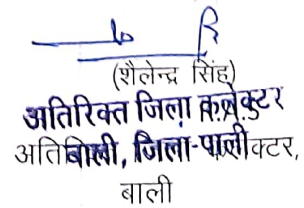 (शैलेन्द्र सिंह)
अतिरिक्त जिला कलेक्टर
बाली, जिला-पाली
बाली